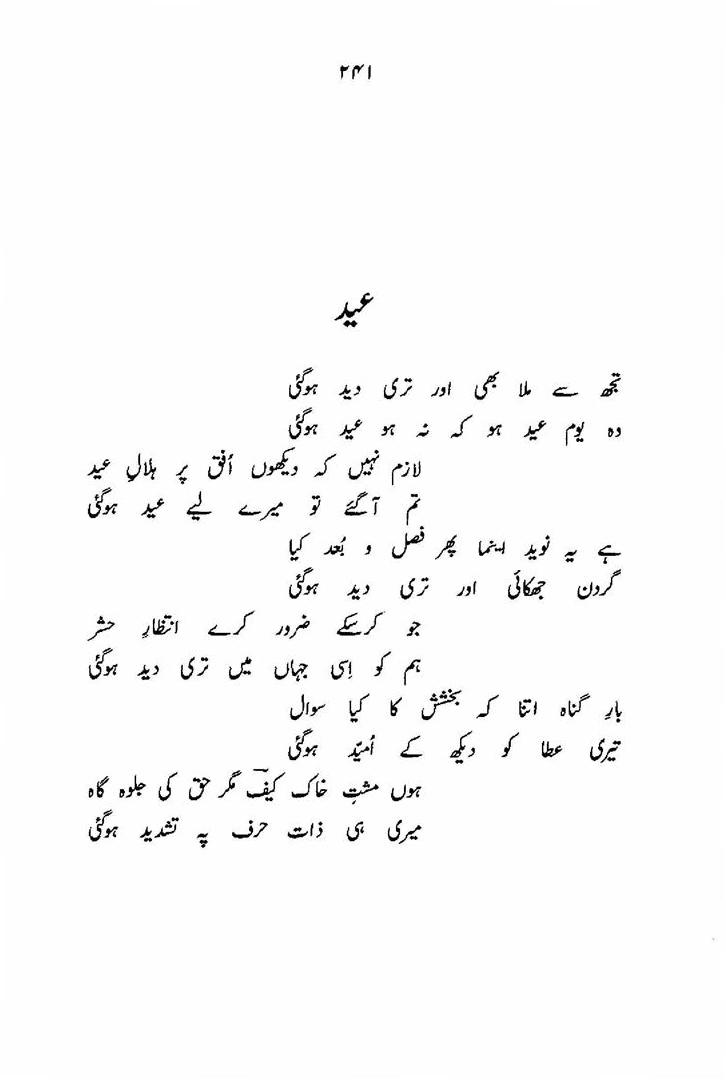 ۲۴۱
عید
تجھ سے ملا بھی اور تری دید ہوگئی
وہ یوم عید ہو کہ نہ ہو عید ہوگئی
لازم نہیں کہ دیکھوں اُفق پر ہلالِ عید
تم آگئے تو میرے لیے عید ہوگئی
ہے یہ نوید اینما پھر فصل و بُعد کیا
گردن جھکائی اور تری دید ہوگئی
جو کرسکے ضرور کرے انتظارِ حشر
ہم کو اِسی جہاں میں تری دید ہوگئی
بارِ گناہ اتنا کہ بخشش کا کیا سوال
تیری عطا کو دیکھ کے اُمیّد ہوگئی
ہوں مشتِ خاک کیفؔ مگر حق کی جلوہ گاہ
میری ہی ذات حرف پہ تشدید ہوگئی